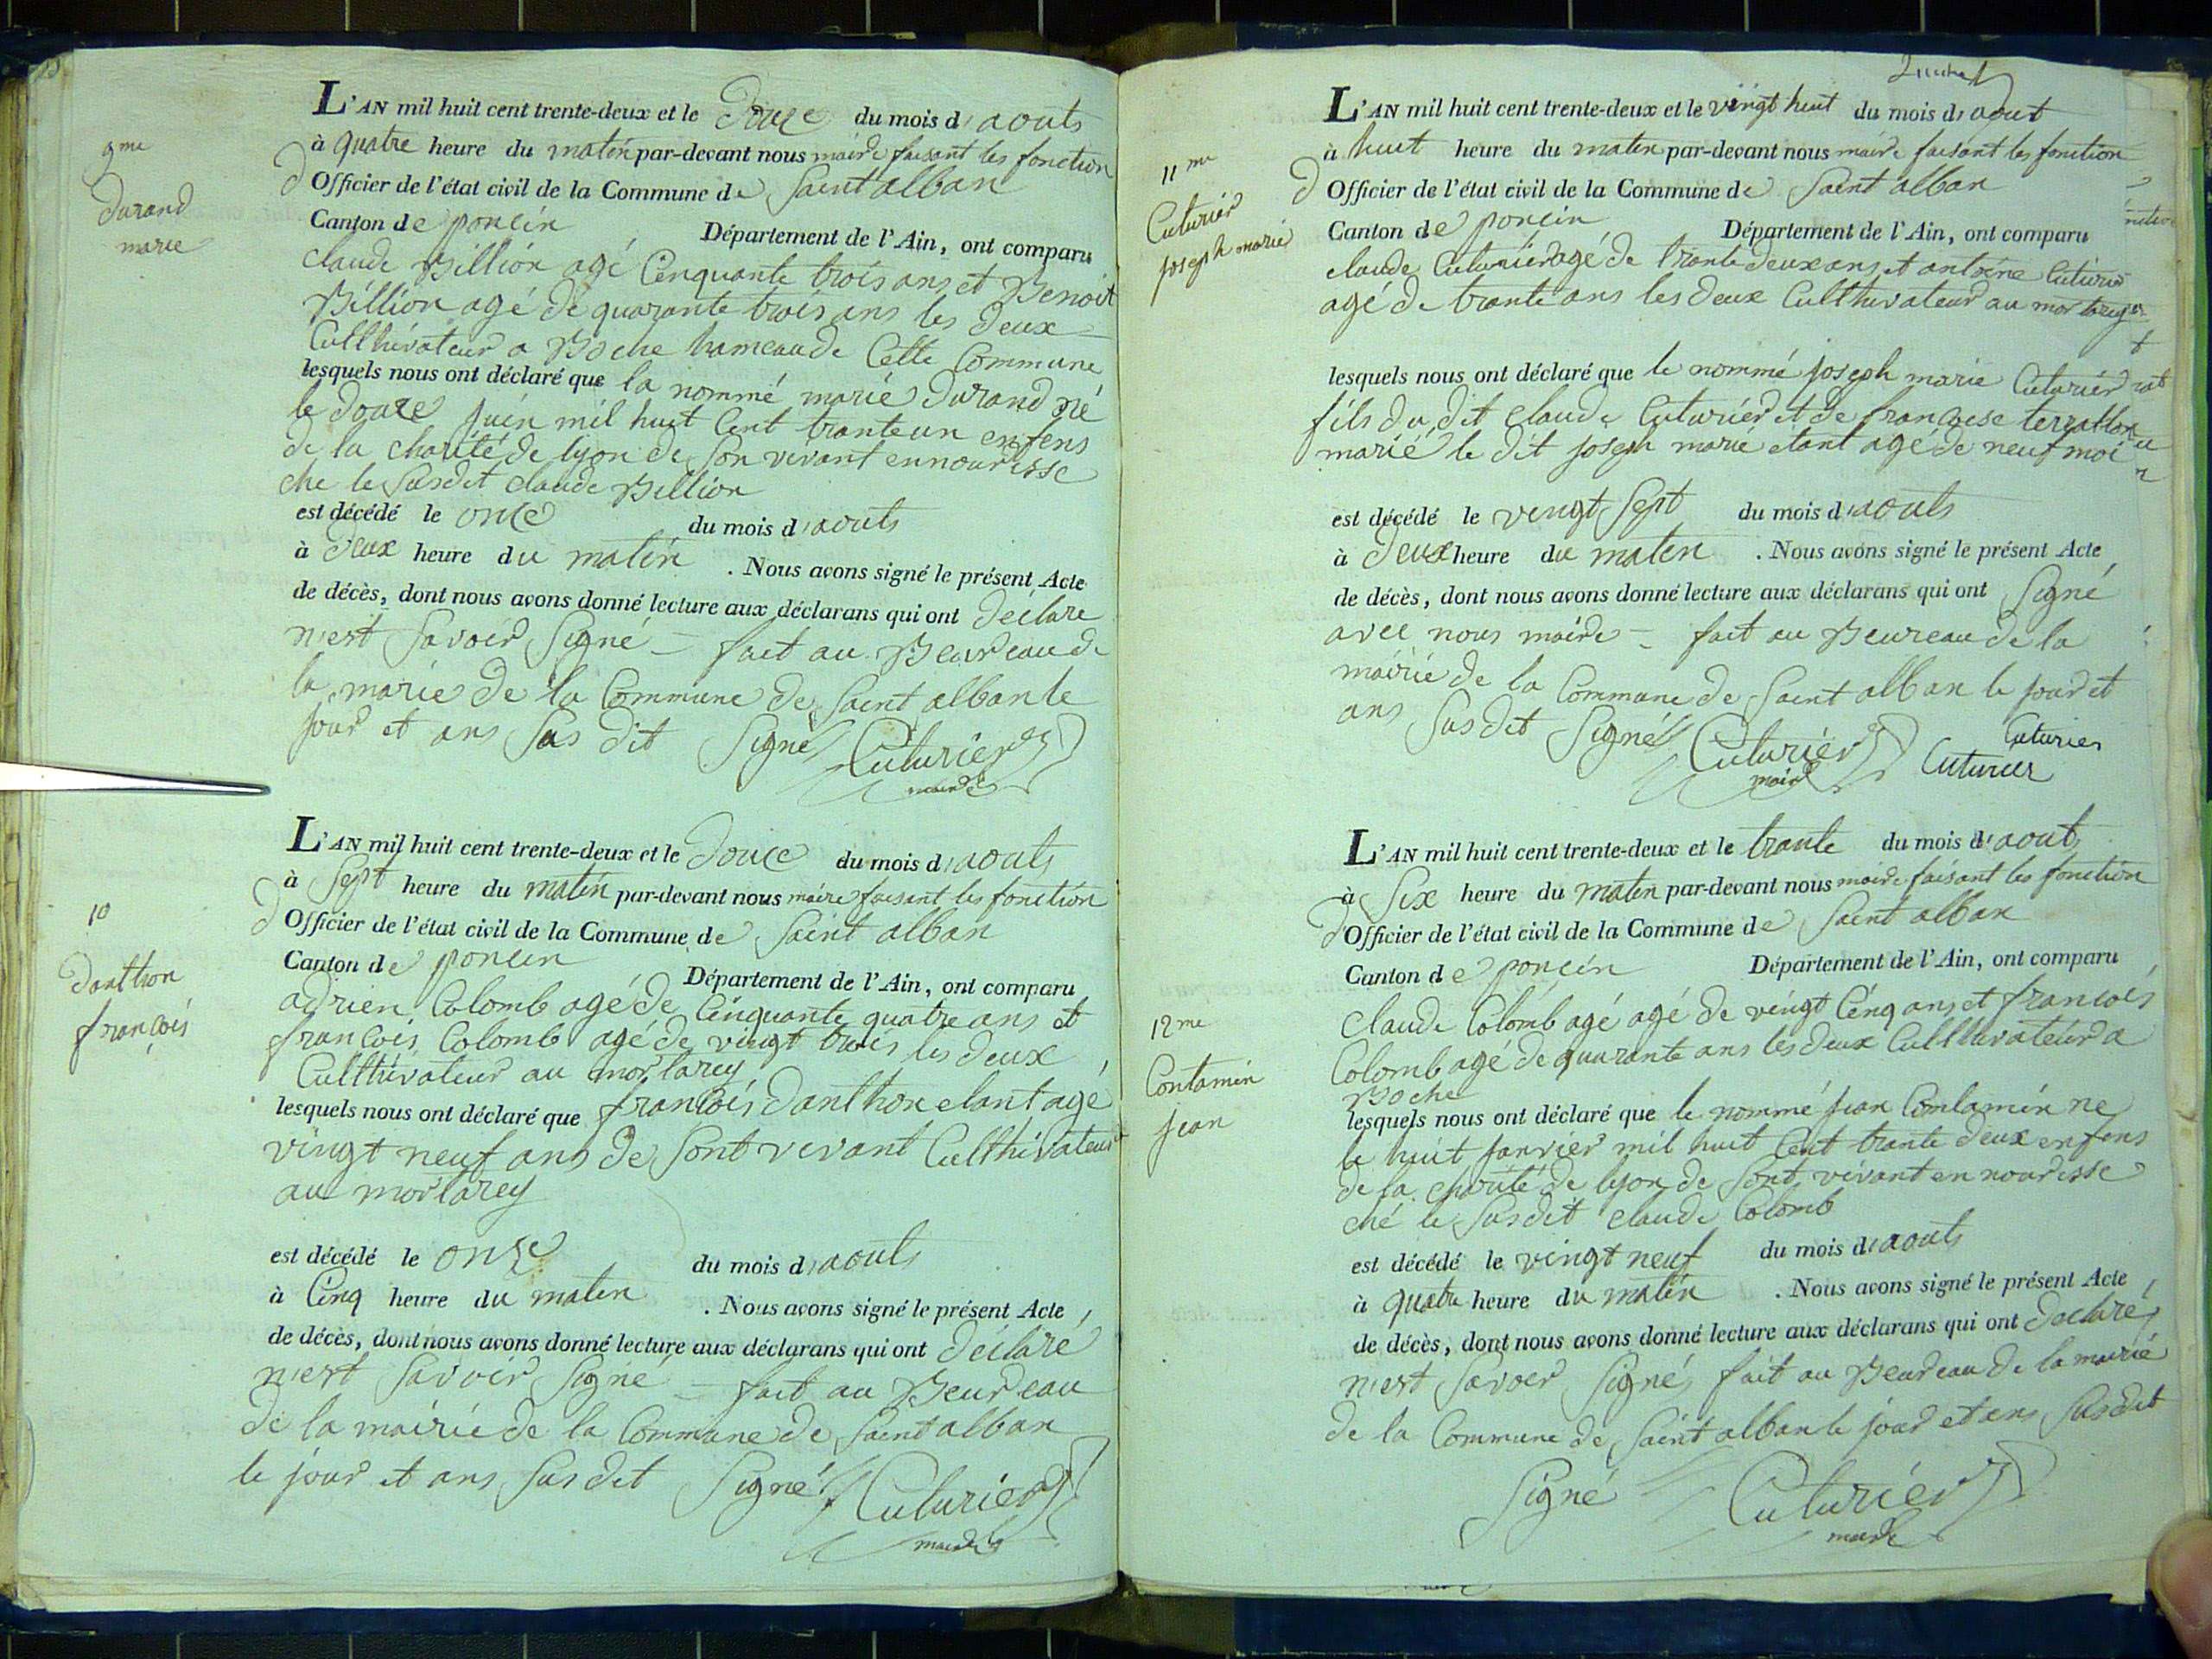 9me
Durand
marie
L'AN mil huit cent trente-deux et le Douze du mois d'aouts
à quatre heure du matin par-devant nous maire faisant les fonction
d Officier de l'état civil de la Commune de Saint alban
Canton de poncin Département de l'Ain, ont comparu
claude Billion agé Cinquante trois ans et Benoit
Billion agé de quarante trois ans les deux
Culthivateur a Boche hameau de Cette Commune
lesquels nous ont déclaré que la nommé marie Durand né
le douze juin mil huit Cent trante un enfens
de la charité de lyon de son vivant en nourisse
che le susdit claude Billion
est décédé le onze du mois d'aouts
à deux heure du matin . Nous avons signé le présent Acte
de décès, dont nous avons donné lecture aux déclarans qui ont déclare
n'est savoir signé – fait au Beureau de
la marie de la Commune de Saint alban le
jour et ans sus dit signé Cuturier
maire
10
Danthon
françois
L'AN mil huit cent trente-deux et le Douze du mois d'aouts
à Sept heure du matin par-devant nous maire faisant les fonction
d Officier de l'état civil de la Commune de Saint alban
Canton de poncin Département de l'Ain, ont comparu
adrien Colomb agé de Cinquante quatre ans et
françois Colomb agé de vingt trois les deux
Culthivateur au mortarey
lesquels nous ont déclaré que françois danthon etant agé
vingt neuf ans de sont vivant Culthivateur
au mortarey
est décédé le onze du mois d'aouts
à Cinq heure du matin . Nous avons signé le présent Acte
de décès, dont nous avons donné lecture aux déclarans qui ont déclaré
n'est savoir signé – fait au Beureau
de la mairie de la Commune de Saint alban
le jour et ans susdit signé Cuturier
maire
11me
Cuturier
joseph marie
L'AN mil huit cent trente-deux et le vingt huit du mois d'aout
à huit heure du matin par-devant nous maire faisant les fonction
d Officier de l'état civil de la Commune de Saint alban
Canton de poncin Département de l'Ain, ont comparu
claude Cuturier agé de trante deux ans et antoine Cuturier
agé de trante ans les deux Culthivateur au mortarey
lesquels nous ont déclaré que le nommé joseph marie Cuturier
fils du dit claude Cuturier et de françoise terrallon
marié le dit joseph marie etant agé de neuf moi
est décédé le vingt Sept du mois d'aouts
à deux heure du matin . Nous avons signé le présent Acte
de décès, dont nous avons donné lecture aux déclarans qui ont signé
avec nous maire – fait au Beureau de la
mairie de la Commune de Saint alban le jour et
ans susdit signé Cuturier Cuturier
maire Cuturier
12me
Contamin
jean
L'AN mil huit cent trente-deux et le trante du mois d'aout
à Six heure du matin par-devant nous maire faisant les fonction
d Officier de l'état civil de la Commune de Saint alban
Canton de poncin Département de l'Ain, ont comparu
claude Colomb agé agé de vingt Cinq ans et françois
Colomb agé de quarante ans les deux Culthivateur a
Boche
lesquels nous ont déclaré que le nommé jean Contamin ne
le huit janvier mil huit Cent trante deux enfens
de la charité de lyon de sont vivant en nourisse
ché le susdit claude Colomb
est décédé le vingt neuf du mois d'aouts
à quatre heure du matin . Nous avons signé le présent Acte
de décès, dont nous avons donné lecture aux déclarans qui ont declaré
n'est savoir signé fait au Beureau de la mairie
de la Commune de Saint alban le jour et ans susdit
signé Cuturier
maire